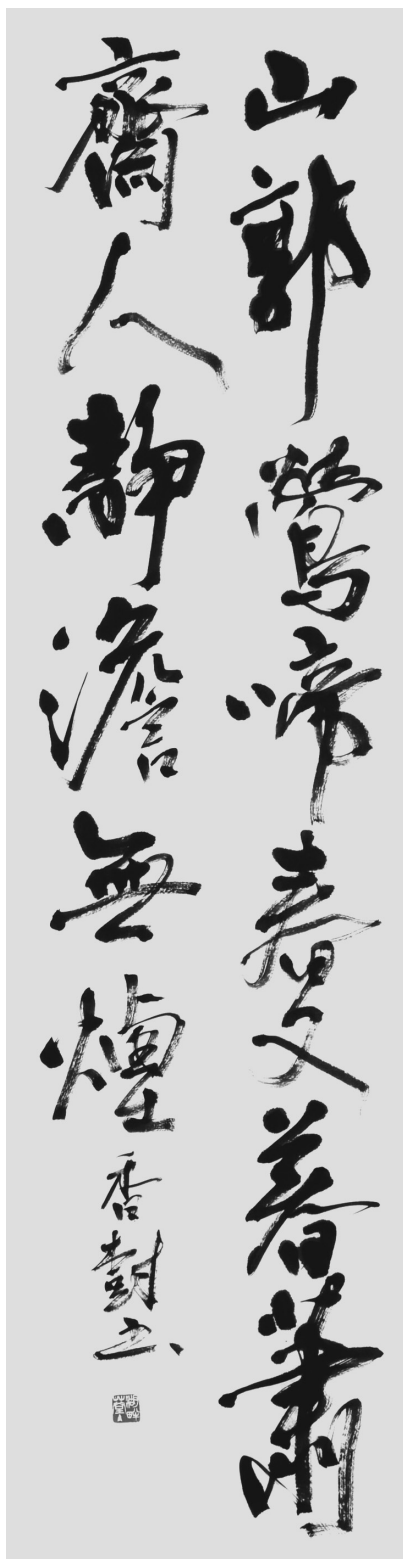 山郭鶯啼春又暮蕭
齋人静澹無煙
香對書